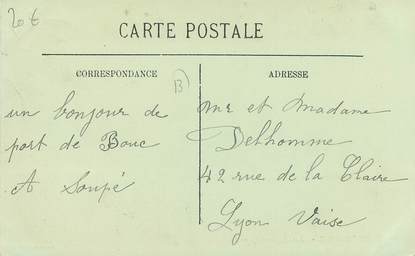 20 €
CARTE POSTALE
CORRESPONDANCE
ADRESSE
B
un bonjour de
port de Bouc
A Soupé
Mr et Madame
Delhomme
42 rue de la Claire
Lyon Vaise